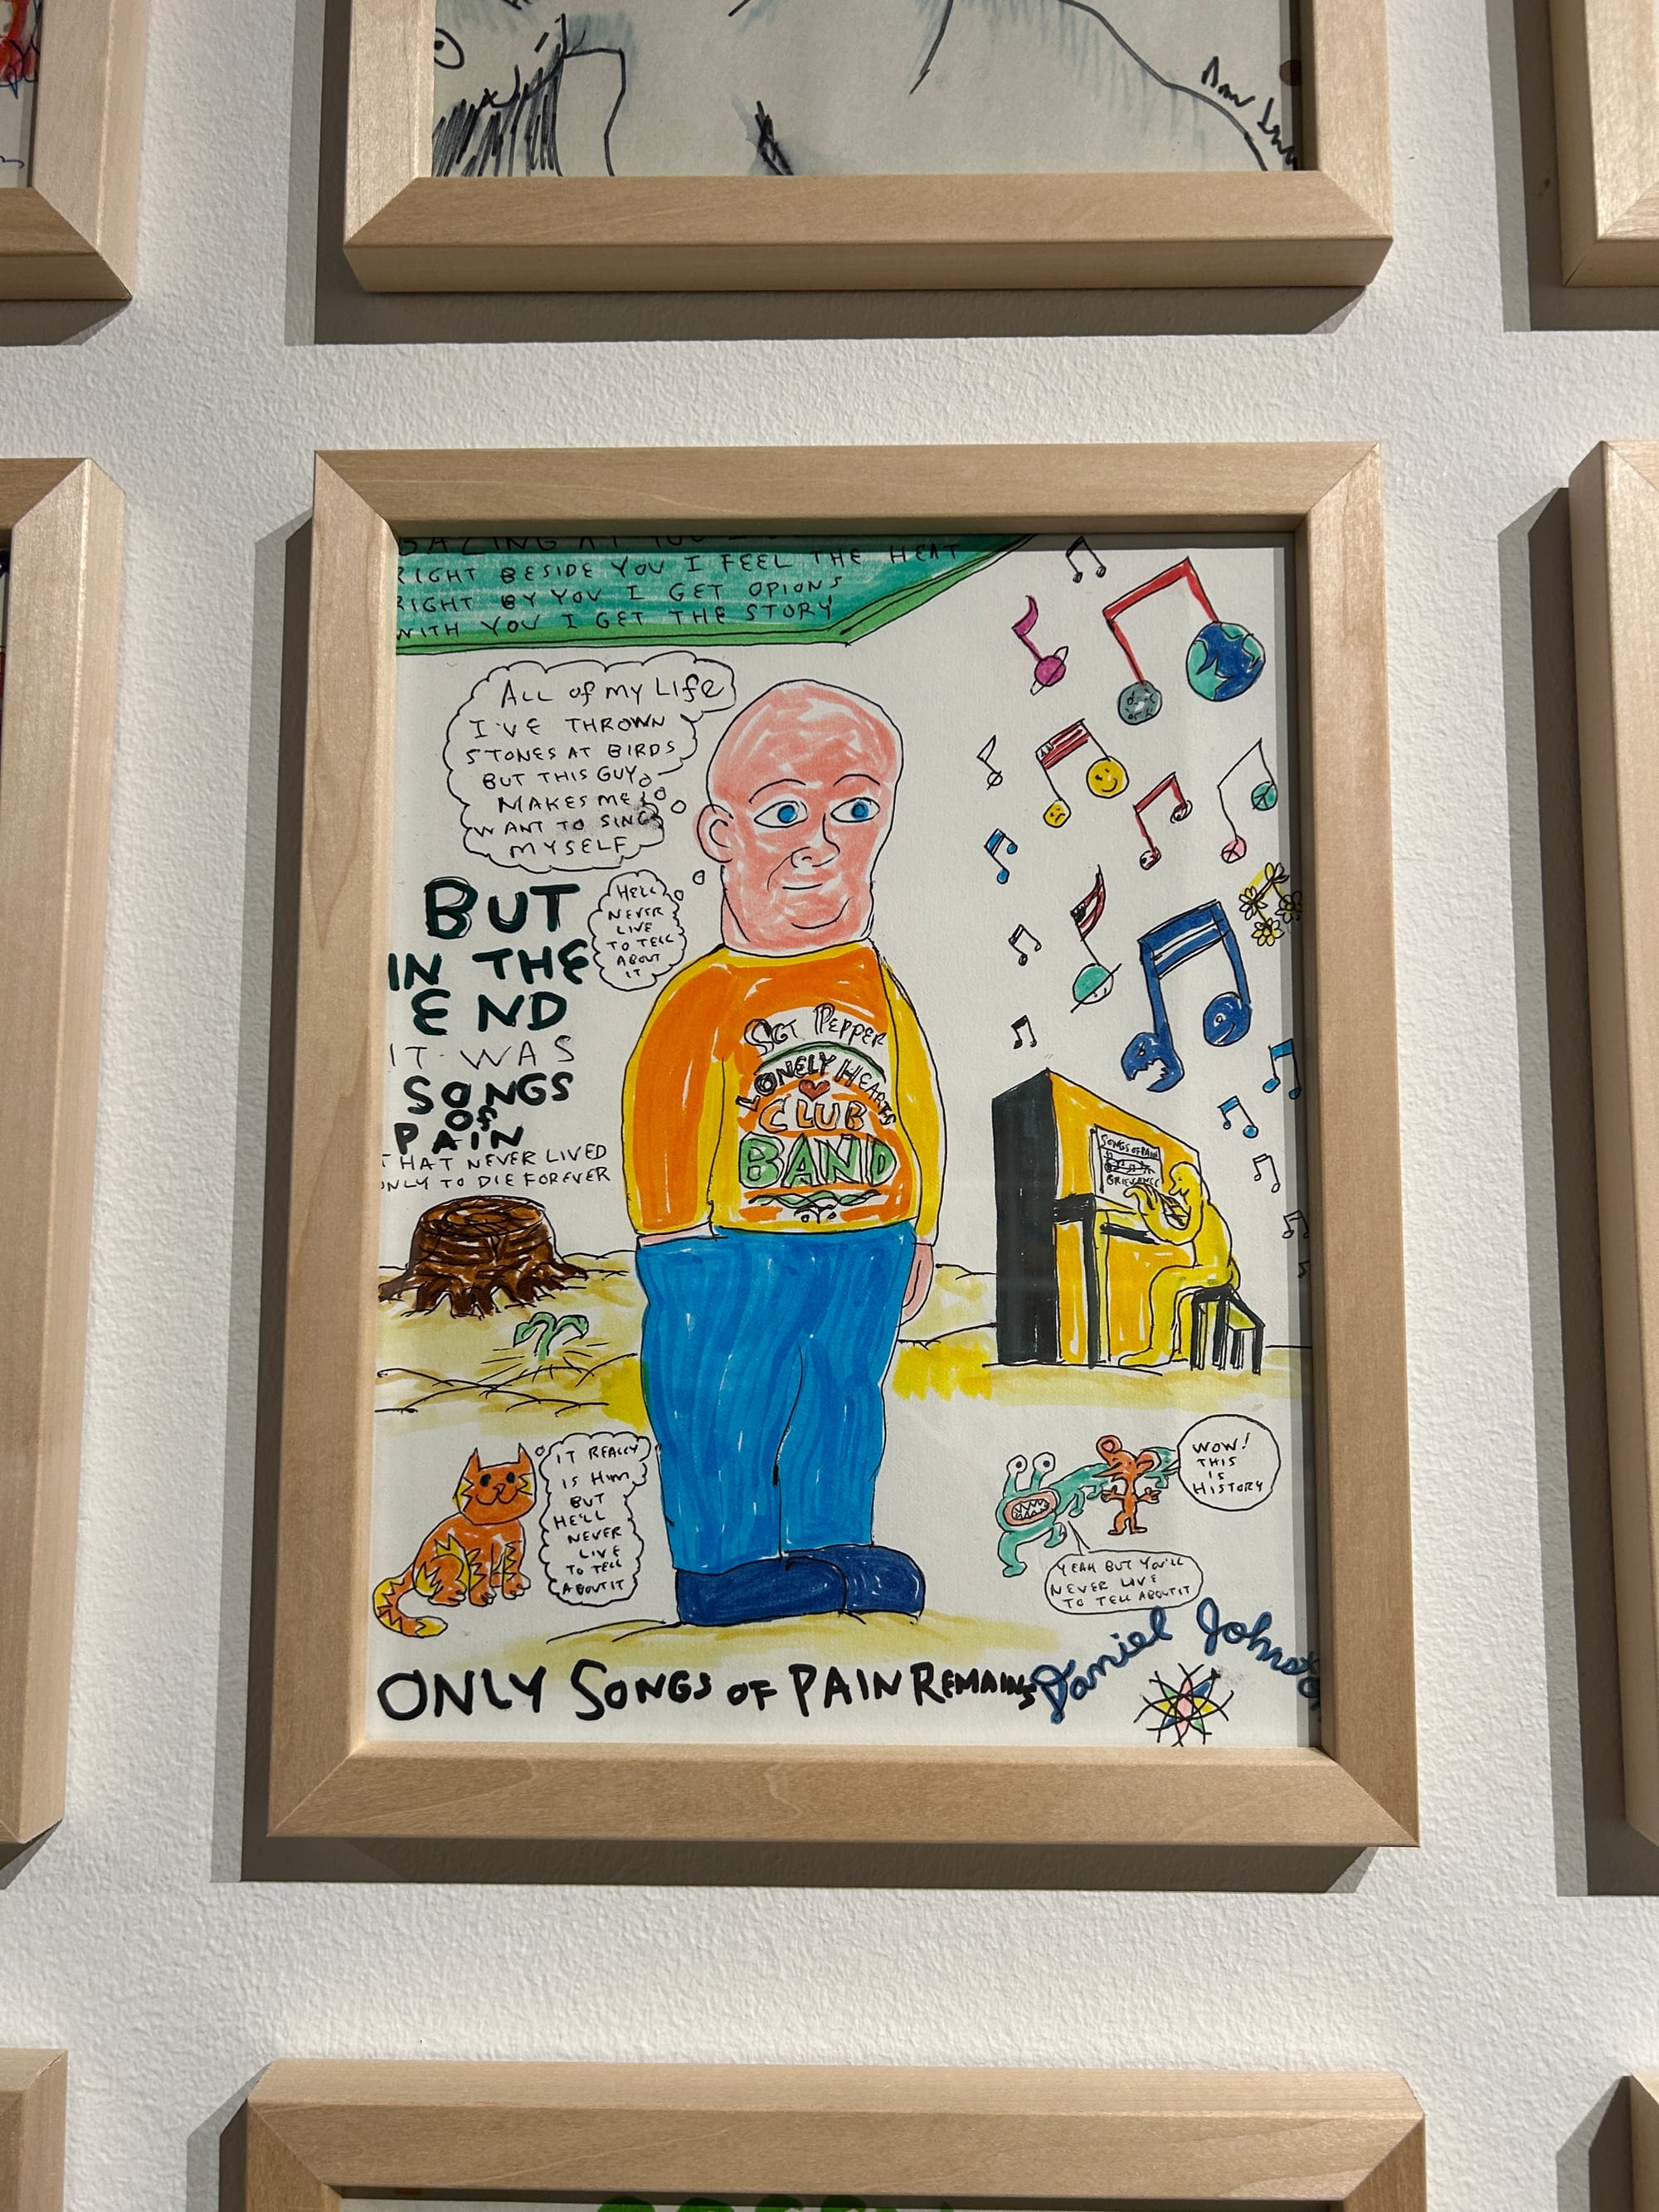 RIGHT BESIDE YOU I FEEL THE HEAT
RIGHT BY YOU I GET OPIONS
WITH YOU I GET THE STORY
ALL OF MY LIFE
I'VE THROWN
STONES AT BIRDS
BUT THIS GUY
MAKES ME
WANT TO SING
MYSELF
HE'LL
NEVER
LIVE
TO TELL
ABOUT
IT
BUT
IN THE
END
IT WAS
SONGS
OF
PAIN
THAT NEVER LIVED
ONLY TO DIE FOREVER
SGT PEPPER
LONELY HEARTS
CLUB
BAND
SONGS OF PAIN
GRIEVANCE
IT REALLY
IS HIM
BUT
HE'LL
NEVER
LIVE
TO TELL
ABOUT IT
WOW!
THIS
IS
HISTORY
YEAH BUT YOU'LL
NEVER LIVE
TO TELL ABOUT IT
ONLY SONGS OF PAIN REMAINS
Daniel Johnston